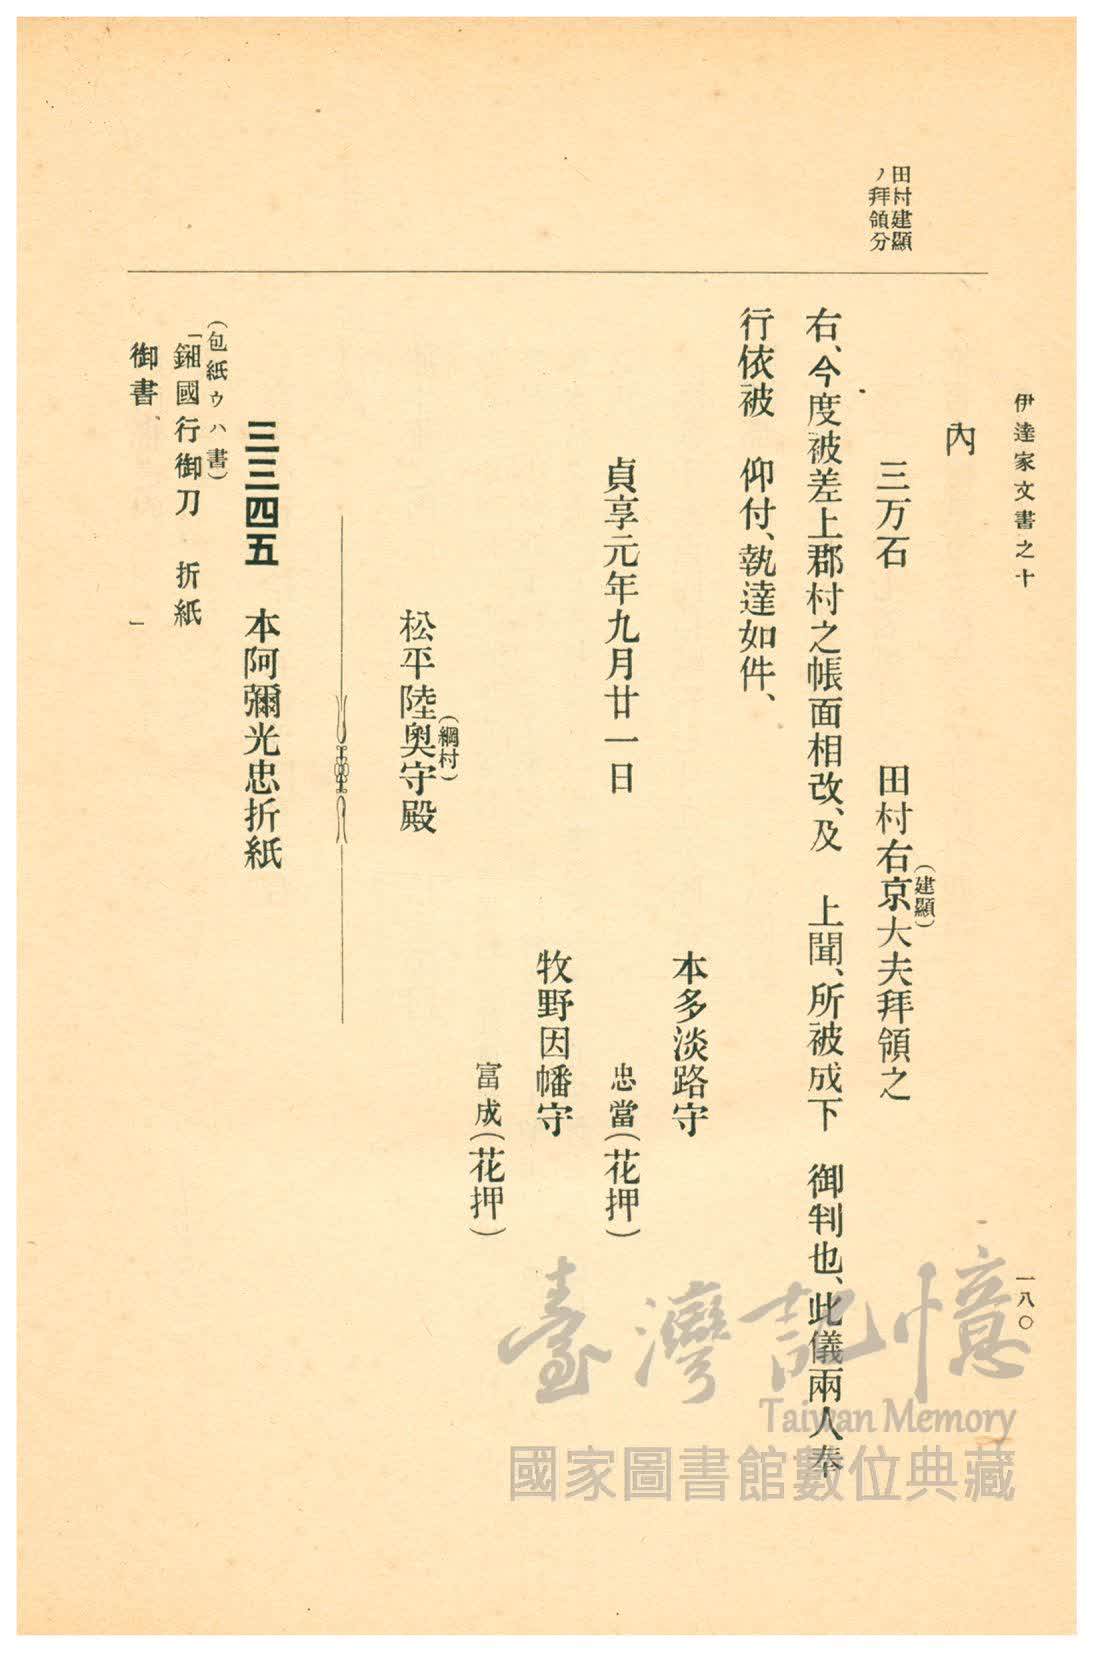 伊達家文書之十
一八〇
田村建顯
ノ拜領分
內
三万石　田村右京大夫拜領之
(建顯)
右、今度被差上郡村之帳面相改、及　上聞、所被成下　御判也、此儀兩人奉
行依被　仰付、執達如件、
本多淡路守
貞享元年九月廿一日　忠當(花押)
牧野因幡守
富成(花押)
(綱村)
松平陸奧守殿
三三四五　本阿彌光忠折紙
(包紙ウハ書)
「鎺國行御刀　折紙
御書、　」
臺灣記憶
Taiwan Memory
國家圖書館數位典藏